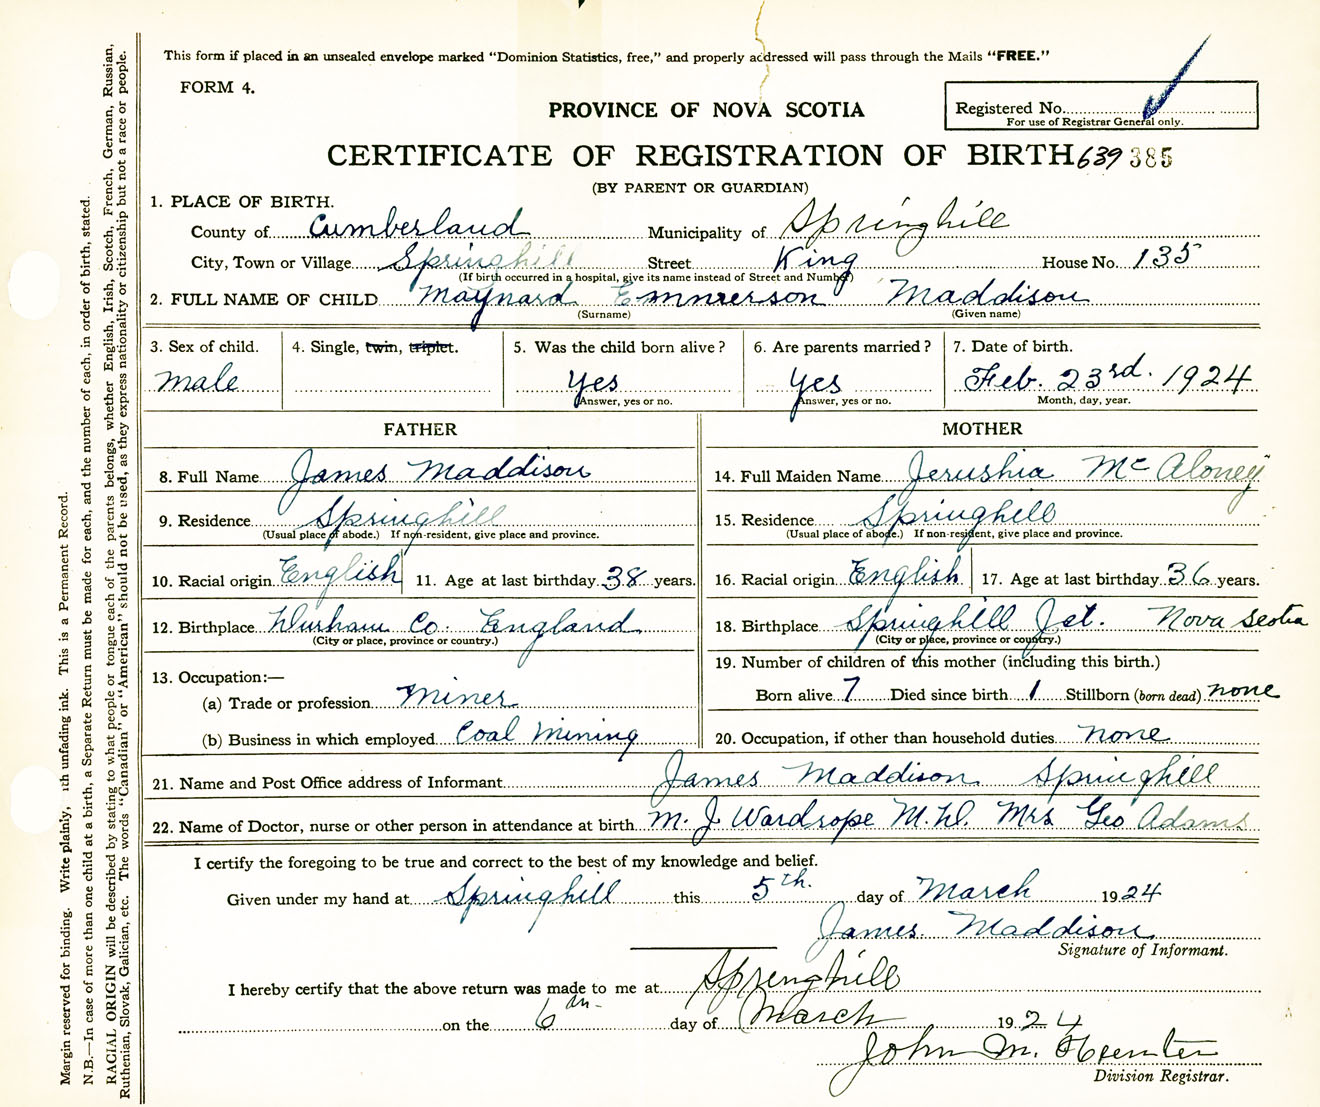 This form if placed in an unsealed envelope marked "Dominion Statistics, free," and properly addressed will pass through the Mails "FREE."
FORM 4.
PROVINCE OF NOVA SCOTIA
Registered No.
For use of Registrar General only.
CERTIFICATE OF REGISTRATION OF BIRTH 639 385
(BY PARENT OR GUARDIAN)
1. PLACE OF BIRTH.
County of Cumberland Municipality of Springhill
City, Town or Village Springhill Street King House No. 135
(If birth occurred in a hospital, give its name instead of Street and Number)
2. FULL NAME OF CHILD Maynard Emmerson Maddison
(Surname) (Given name)
3. Sex of child. 4. Single, twin, triplet. 5. Was the child born alive? 6. Are parents married? 7. Date of birth.
male Yes Yes Feb. 23rd. 1924
Answer, yes or no. Answer, yes or no. Month, day, year.
FATHER MOTHER
8. Full Name James Maddison 14. Full Maiden Name Jerushia Mc Aloney
9. Residence Springhill 15. Residence Springhill
(Usual place of abode.) If non-resident, give place and province. (Usual place of abode.) If non-resident, give place and province.
10. Racial origin English 11. Age at last birthday 38 years. 16. Racial origin English 17. Age at last birthday 36 years.
12. Birthplace Durham Co. England 18. Birthplace Springhill Jct. Nova Scotia
(City or place, province or country.) (City or place, province or country.)
13. Occupation:— 19. Number of children of this mother (including this birth.)
(a) Trade or profession Miner Born alive 7 Died since birth 1 Stillborn (born dead) none
(b) Business in which employed Coal Mining 20. Occupation, if other than household duties none
21. Name and Post Office address of Informant James Maddison Springhill
22. Name of Doctor, nurse or other person in attendance at birth M. J Wardrope M.D. Mrs Geo Adams
I certify the foregoing to be true and correct to the best of my knowledge and belief.
Given under my hand at Springhill this 5th. day of March 1924
James Maddison
Signature of Informant.
I hereby certify that the above return was made to me at Springhill
on the 6th day of March 1924
John M. Hunter
Division Registrar.
Margin reserved for binding. Write plainly, ith unfading ink. This is a Permanent Record.
N.B.—In case of more than one child at a birth, a Separate Return must be made for each, and the number of each, in order of birth, stated.
RACIAL ORIGIN will be described by stating to what people or tongue each of the parents belongs, whether English, Irish, Scotch, French, German, Russian,
Ruthenian, Slovak, Galician, etc. The words "Canadian" or "American" should not be used, as they express nationality or citizenship but not a race or people.